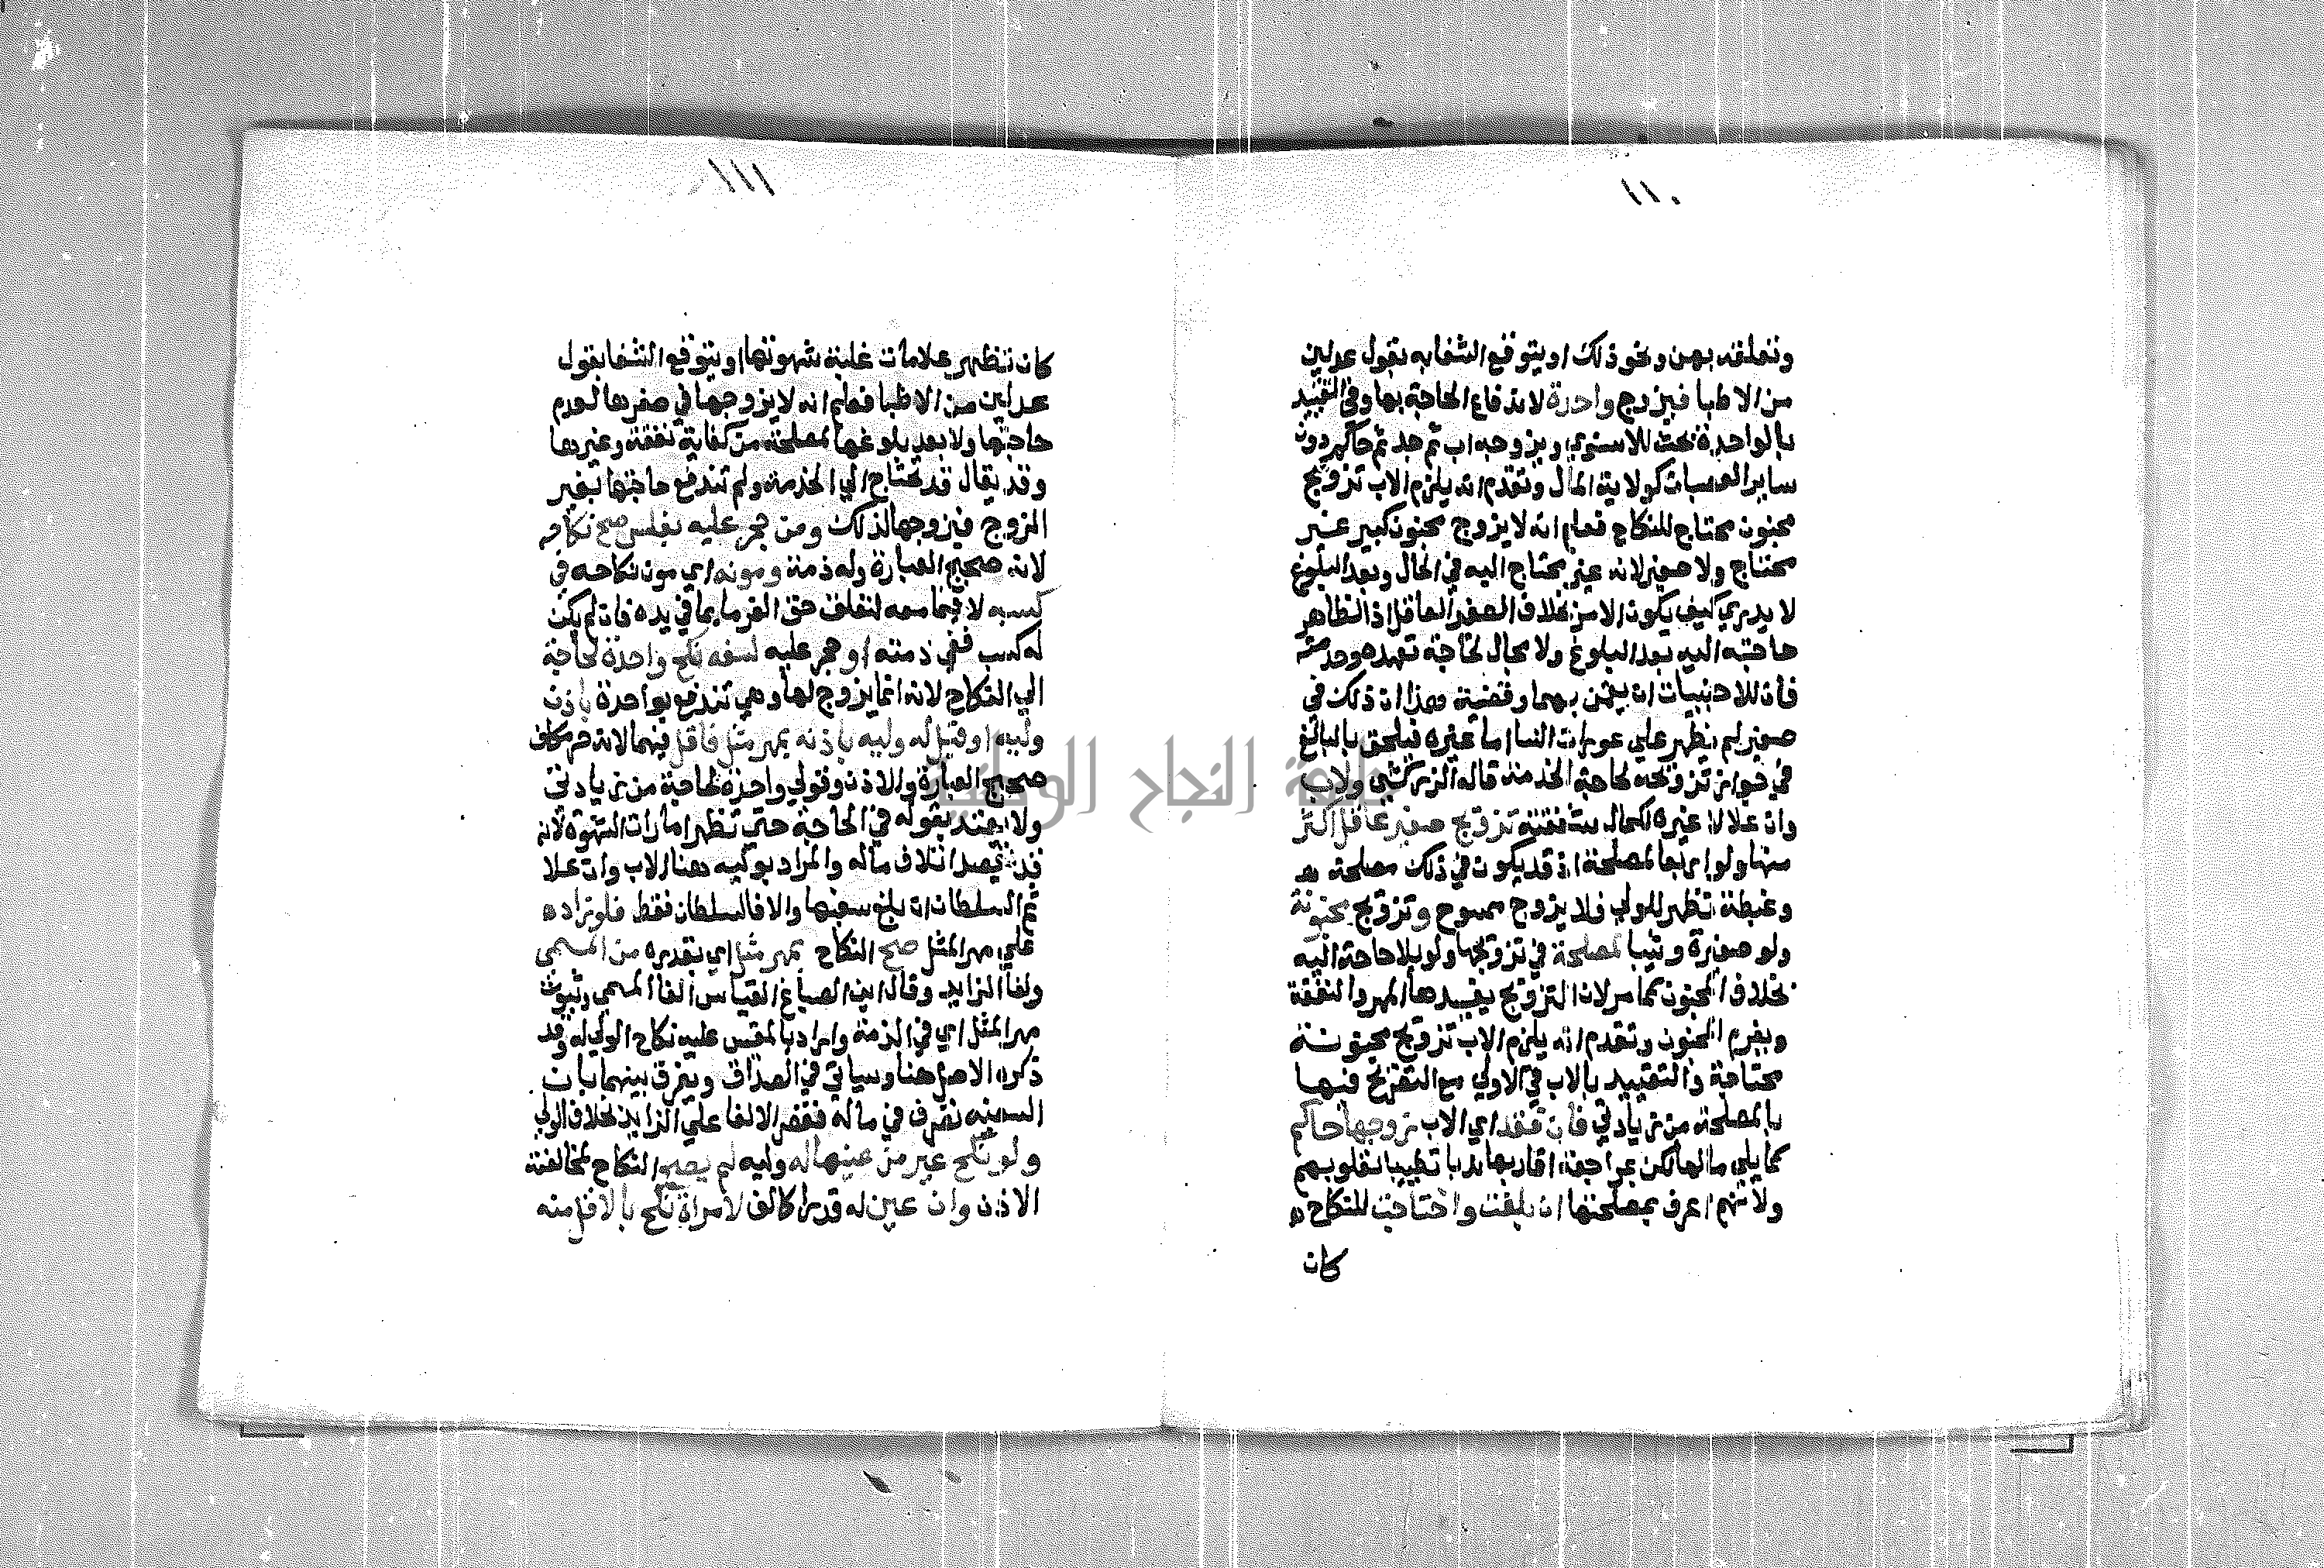 ١١٠
وتعلقه بهن ونحو ذلك او يتوقع الشفا به بقول عدلين
من الاطبا فيزوج واحدة لاندفاع الحاجة بها وفي التقييد
بالواحدة بحث للاسنوي ويزوجه اب ثم جد ثم حاكم دون
ساير العصبات كولاية المال وتقدم انه يلزم الاب تزويج
مجنون محتاج للنكاح فعلم انه لا يزوج مجنون كبير غير
محتاج ولا صغير لانه غير محتاج اليه في الحال وبعد البلوغ
لا يدري كيف يكون الامر بخلاف الصغير العاقل اذ الظاهر
حاجته اليه بعد البلوغ ولا مجال لحاجة تعهده وخدمته
فان للاجنبيات ان يقمن بهما وقضية هذا ان ذلك في
صغير لم يظهر علي عورات النسا اما غيره فيلحق بالبالغ
في جواز تزويجه لحاجة الخدمة قاله الزركشي ولاب
وان علا لا غيره لكمال شفقته تزويج صغير عاقل اكثر
منها ولو اربعا لمصلحة اذ قد يكون في ذلك مصلحة
وغبطة تظهر للولي فلا يزوج ممسوح وتزويج مجنونة
ولو صغيرة وثيبا لمصلحة في تزويجها ولو بلا حاجة اليه
بخلاف المجنون كما مر لان التزويج يفيدها المهر والنفقة
ويغرم المجنون وتقدم انه يلزم الاب تزويج مجنونة
محتاجة والتقييد بالاب في الاولي مع التفريج فيها
بالمصلحة من زيادتي فان فقد اي الاب زوجها حاكم
كما يلي مالها لكن بمراجعة اقاربها ندبا تطييبا لقلوبهم
ولانهم اعرف بمصلحتها ان بلغت واحتاجت للنكاح
كان
١١١
كان تظهر علامات غلبة شهوتها او يتوقع الشفا بقول
عدلين من الاطبا فعلم انه لا يزوجها في صغرها لعدم
حاجتها ولا بعد بلوغها لمصلحة من كفاية نفقة وغيرها
وقد يقال قد تحتاج الي الخدمة ولم تندفع حاجتها بغير
الزوج فيزوجها لذلك ومن حجر عليه بفلس صح نكاحه
لانه صحيح العبارة وله ذمة ومونه اي مون نكاحه في
كسبه لا فيما معه لتعلق حق الغرما بما في يده فان لم يكن
له كسب ففي ذمته او حجر عليه لسفه نكح واحدة لحاجة
الي النكاح لانه انما يزوج لها وهي تندفع بواحدة باذن
وليه او قبل له وليه باذنه بمهر مثل فاقل فيهما لانه حر مكلف
صحيح العبارة والاذن وقولي واحدة لحاجة من زيادتي
ولا يعتد بقوله في الحاجة حتي تظهر امارات الشهوة لانه
قد يقصد اتلاف ماله والمراد بوليه هنا الاب وان علا
ثم السلطان ان بلغ سفيها والا فالسلطان فقط فلو زاده
علي مهر المثل صح النكاح بمهر مثل اي بقدره من المسمي
ولغا الزايد وقال ابن الصباغ القياس الغا المسمي وثبوت
مهر المثل اي في الذمة واراد بالمقيس عليه نكاح الولي له وقد
ذكره الاصل هنا وسياتي في الصداق ويفرق بينهما بان
السفيه تصرف في ماله فقصر الالغا علي الزايد بخلاف الولي
ولو نكح غير من عينها له وليه لم يصح النكاح لمخالفته
الاذن وان عين له قدرا كالف لا امراة نكح بالاقل منه
جامعة النجاح الوطنية